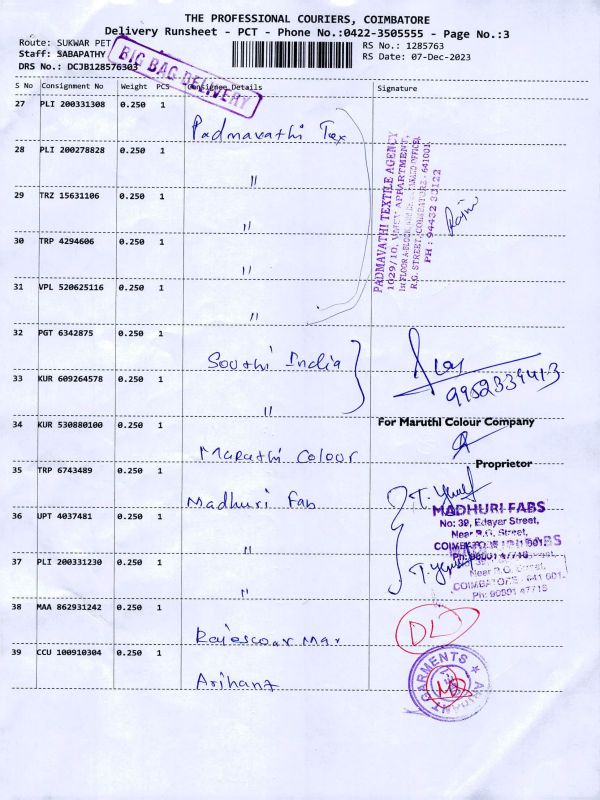 THE PROFESSIONAL COURIERS, COIMBATORE
Delivery Runsheet - PCT - Phone No.:0422-3505555 - Page No.:3
Route: SUKWAR PET
RS No.: 1285763
Staff: SABAPATHY
RS Date: 07-Dec-2023
DRS No.: DCJB128576303
BIG BAG DELIVERY
S No Consignment No Weight PCS Consignee Details Signature
27 PLI 200331308 0.250 1 Padmavathi Tex
28 PLI 200278828 0.250 1 "
29 TRZ 15631106 0.250 1 "
30 TRP 4294606 0.250 1 "
31 VPL 520625116 0.250 1 "
PADMAVATHI TEXTILE AGENCY
R.G. STREET, COIMBATORE - 641001
32 PGT 6342875 0.250 1 Southi India
33 KUR 609264578 0.250 1 "
9952339413
34 KUR 530880100 0.250 1 Marathi Colour
For Maruthi Colour Company
Proprietor
35 TRP 6743489 0.250 1 Madhuri Fab
36 UPT 4037481 0.250 1 "
37 PLI 200331230 0.250 1 "
MADHURI FABS
No: 39, Edayar Street,
Near R.G. Street,
COIMBATORE
COIMBATORE - 641 001.
Ph: 90801 47718
38 MAA 862931242 0.250 1 Rajeswar Mar
DL
39 CCU 100910304 0.250 1 Arihant
ARIHANT GARMENTS